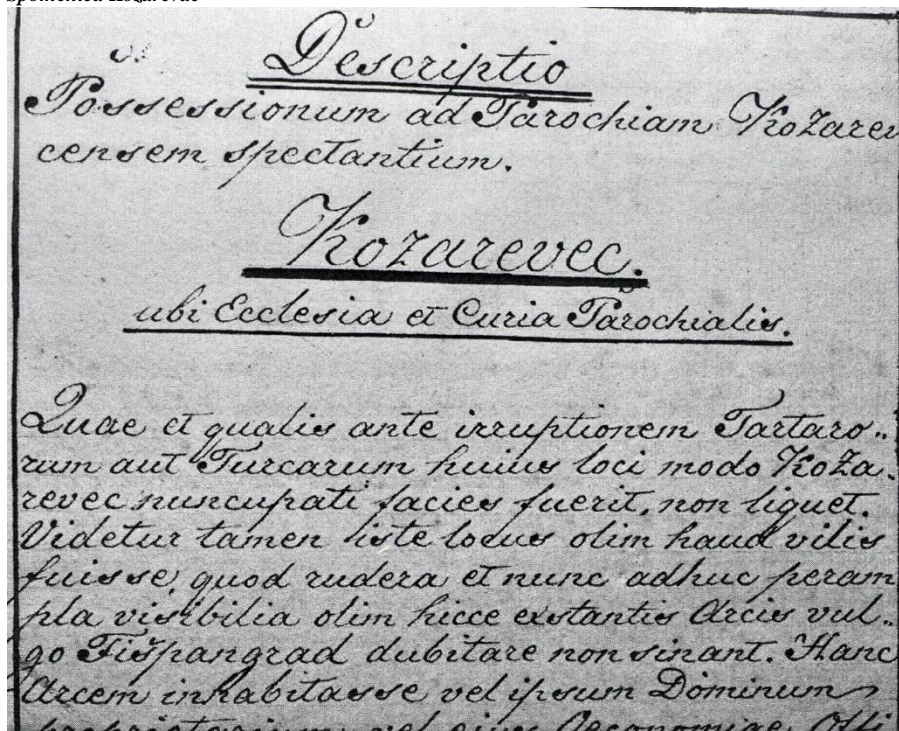 Spomenica Kozarevac
Descriptio
Possessionum ad Parochiam Kozarev
censem spectantium.
Kozarevec.
ubi Ecclesia et Curia Parochialis.
Quae et qualis ante irruptionem Tartaro„
rum aut Turcarum huius loci modo Koza„
revec nuncupati facies fuerit, non liquet.
Videtur tamen iste locus olim haud vilis
fuisse, quod rudera et nunc adhuc peram
pla visibilia olim hicce exstantis Arcis vul„
go Fišpangrad dubitare non sinant. Hanc
Arcem inhabitasse vel ipsum Dominum
proprietarium, vel eius Oeconomiae Offi